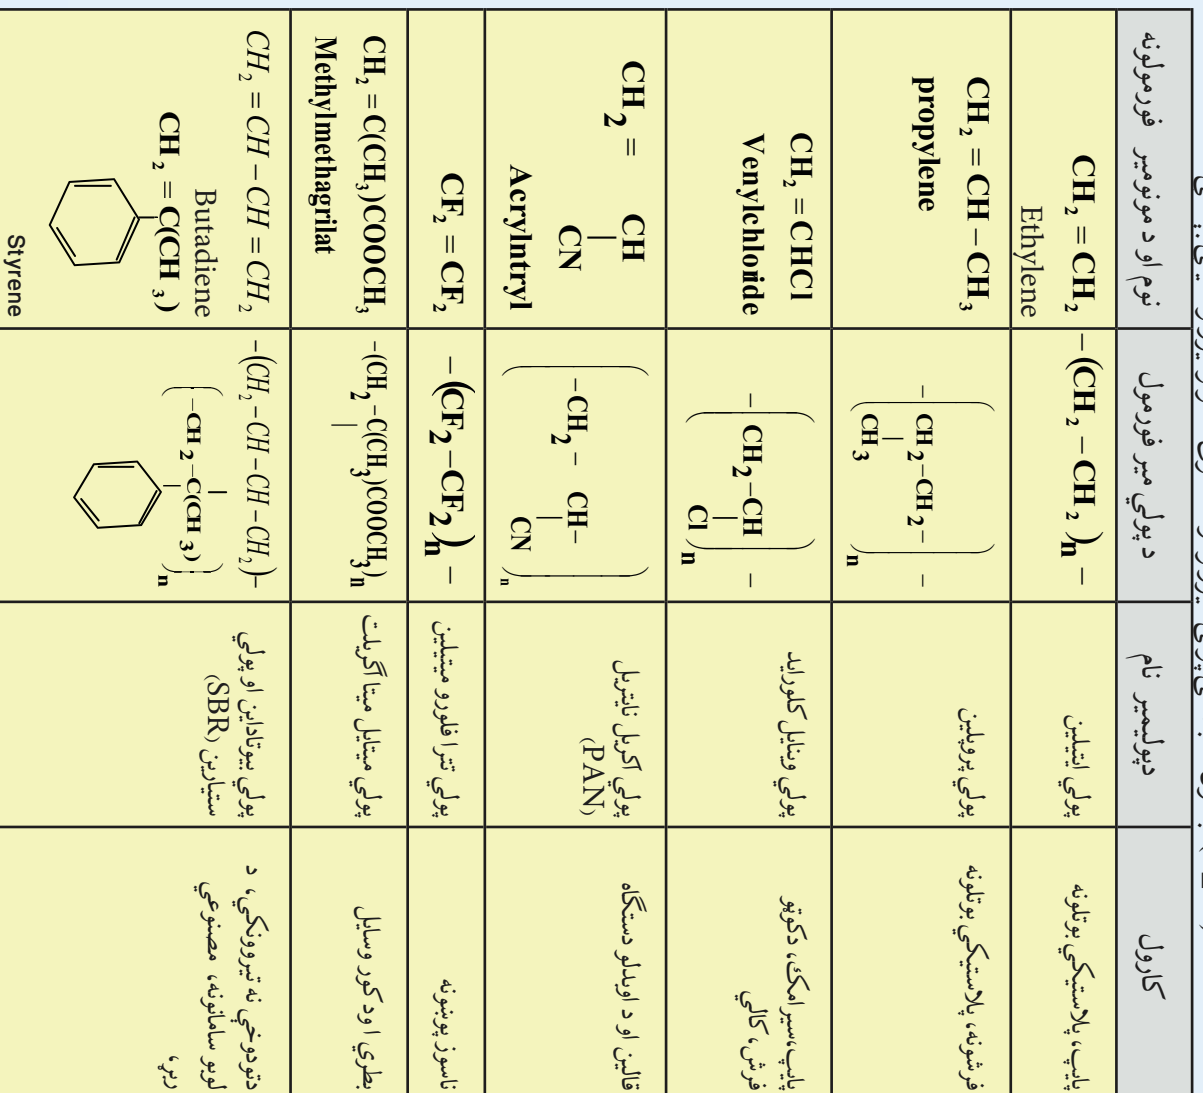 نوم او د مونومير فورمولونه
د پولي مير فورمول
دپوليمير نام
کارول
CH₂ = CH₂
Ethylene
−(CH₂ − CH₂)n −
پولي ايتيلين
پايپ، پلاستيکي بوتلونه
CH₂ = CH − CH₃
propylene
− (CH₂ − CH₂ −)n −
|
CH₃
پولي پروپلين
فرشونه، پلاستيکي بوتلونه
CH₂ = CHCl
Venylchloride
− (CH₂ − CH)n −
|
Cl
پولي وينايل کلورايد
پايپ،سيرامک، دکوټو
فرش، کالي
CH₂ = CH
|
CN
Acrylntryl
(−CH₂ − CH−)n
|
CN
پولي اکريل نايتريل
(PAN)
قالين او د اوبدلو دستگاه
CF₂ = CF₂
−(CF₂ − CF₂)n −
پولي تترا فلورو ميتيلين
ناسوز پوښونه
CH₂ = C(CH₃)COOCH₃
Methylmethagrilat
−(CH₂ − C(CH₃)COOCH₃)n
|
پولي ميتايل ميتا اگريلت
بطري ا ود کور وسايل
CH₂ = CH − CH = CH₂
Butadiene
CH₂ = C(CH₃)
Styrene
−(CH₂ − CH − CH − CH₂)−
(−CH₂ − C(CH₃))n
پولي بيوتاداين او پولي
ستيارين (SBR)
دتودوخې نه تيروونکي، د
لوبو سامانونه، مصنوعي
ربړ،